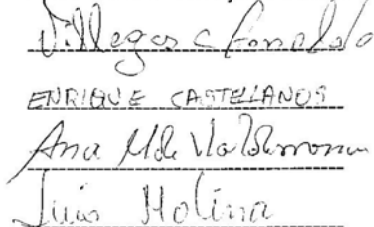 Villegas C Arnoldo
ENRIQUE CASTELANOS
Ana M de Valderrama
Luis Molina